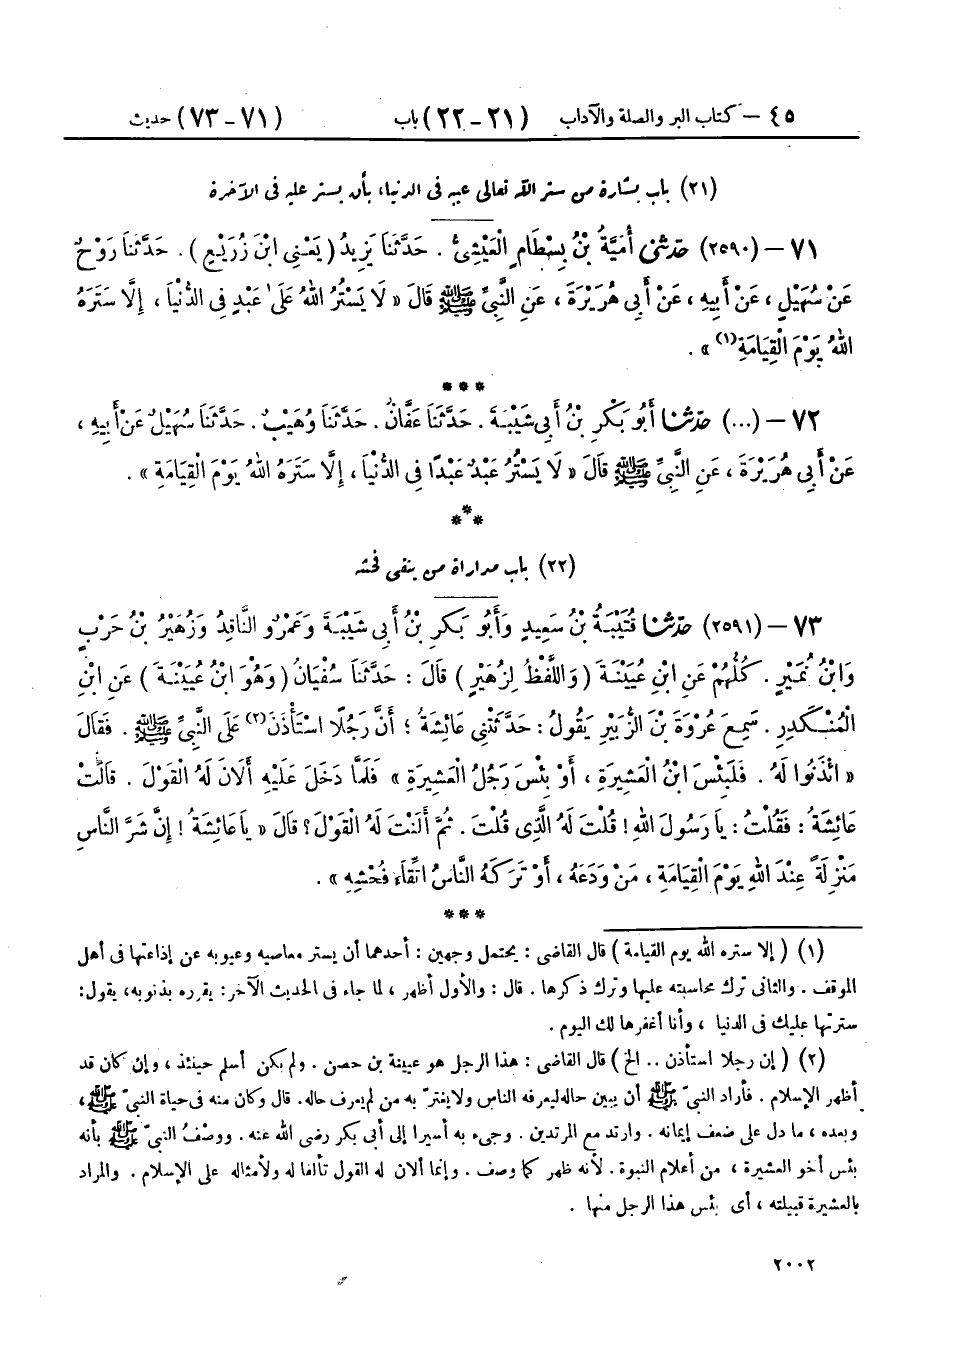 ٤٥ — كتاب البر والصلة والآداب (٢١-٢٢) باب (٧١-٧٣) حديث
(٢١) باب بشارة من ستر الله تعالى عيبه فى الدنيا، بأن يستر عليه فى الآخرة
٧١ — (٢٥٩٠) حَدَّثَنِى أُمَيَّةُ بْنُ بِسْطَامٍ الْعَيْشِىُّ . حَدَّثَنَا يَزِيدُ ( يَعْنِى ابْنَ زُرَيْعٍ ) . حَدَّثَنَا رَوْحٌ
عَنْ سُهَيْلٍ ، عَنْ أَبِيهِ ، عَنْ أَبِى هُرَيْرَةَ ، عَنِ النَّبِىِّ ﷺ قَالَ « لَا يَسْتُرُ اللهُ عَلَىٰ عَبْدٍ فِى الدُّنْيَا ، إِلَّا سَتَرَهُ
اللهُ يَوْمَ الْقِيَامَةِ(١) » .
***
٧٢ — (...) حَدَّثَنَا أَبُو بَكْرِ بْنُ أَبِى شَيْبَةَ . حَدَّثَنَا عَفَّانُ . حَدَّثَنَا وُهَيْبٌ . حَدَّثَنَا سُهَيْلٌ عَنْ أَبِيهِ ،
عَنْ أَبِى هُرَيْرَةَ ، عَنِ النَّبِىِّ ﷺ قَالَ « لَا يَسْتُرُ عَبْدٌ عَبْدًا فِى الدُّنْيَا ، إِلَّا سَتَرَهُ اللهُ يَوْمَ الْقِيَامَةِ » .
***
(٢٢) باب مداراة من يتقى فحشه
٧٣ — (٢٥٩١) حَدَّثَنَا قُتَيْبَةُ بْنُ سَعِيدٍ وَأَبُو بَكْرِ بْنُ أَبِى شَيْبَةَ وَعَمْرٌو النَّاقِدُ وَزُهَيْرُ بْنُ حَرْبٍ
وَابْنُ نُمَيْرٍ . كُلُّهُمْ عَنِ ابْنِ عُيَيْنَةَ ( وَاللَّفْظُ لِزُهَيْرٍ ) قَالَ : حَدَّثَنَا سُفْيَانُ ( وَهُوَ ابْنُ عُيَيْنَةَ ) عَنِ ابْنِ
الْمُنْكَدِرِ . سَمِعَ عُرْوَةَ بْنَ الزُّبَيْرِ يَقُولُ : حَدَّثَتْنِى عَائِشَةُ ؛ أَنَّ رَجُلًا اسْتَأْذَنَ(٢) عَلَى النَّبِىِّ ﷺ . فَقَالَ
« ائْذَنُوا لَهُ . فَلَبِئْسَ ابْنُ الْعَشِيرَةِ ، أَوْ بِئْسَ رَجُلُ الْعَشِيرَةِ » فَلَمَّا دَخَلَ عَلَيْهِ أَلَانَ لَهُ الْقَوْلَ . قَالَتْ
عَائِشَةُ : فَقُلْتُ : يَا رَسُولَ اللهِ ! قُلْتَ لَهُ الَّذِى قُلْتَ . ثُمَّ أَلَنْتَ لَهُ الْقَوْلَ ؟ قَالَ « يَا عَائِشَةُ ! إِنَّ شَرَّ النَّاسِ
مَنْزِلَةً عِنْدَ اللهِ يَوْمَ الْقِيَامَةِ ، مَنْ وَدَعَهُ ، أَوْ تَرَكَهُ النَّاسُ اتِّقَاءَ فُحْشِهِ » .
***
(١) ( إلا ستره الله يوم القيامة ) قال القاضى : يحتمل وجهين : أحدهما أن يستر معاصيه وعيوبه عن إذاعتها فى أهل
الموقف . والثانى ترك محاسبته عليها وترك ذكرها . قال : والأول أظهر ، لما جاء فى الحديث الآخر : يقرره بذنوبه، يقول:
سترتها عليك فى الدنيا ، وأنا أغفرها لك اليوم .
(٢) ( إن رجلا استأذن .. الخ ) قال القاضى : هذا الرجل هو عيينة بن حصن . ولم يكن أسلم حينئذ ، وإن كان قد
أظهر الإسلام . فأراد النبىّ ﷺ أن يبين حاله ليعرفه الناس ولا يغترّ به من لم يعرف حاله. قال وكان منه فى حياة النبىّ ﷺ ،
وبعده ، ما دل على ضعف إيمانه . وارتد مع المرتدين . وجىء به أسيرا إلى أبى بكر رضى الله عنه . ووصْفُ النبىّ ﷺ بأنه
بئس أخو العشيرة ، من أعلام النبوة . لأنه ظهر كما وصف . وإنما ألان له القول تألفا له ولأمثاله على الإسلام . والمراد
بالعشيرة قبيلته ، أى بئس هذا الرجل منها .
٢٠٠٢